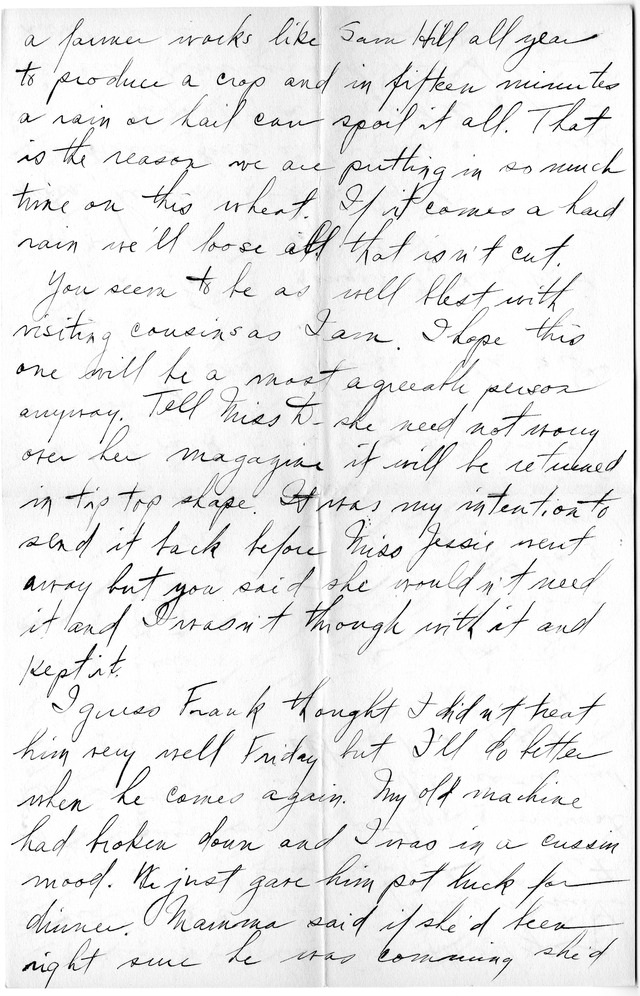 a farmer works like Sam Hill all year
to produce a crop and in fifteen minutes
a rain or hail can spoil it all. That
is the reason we are putting in so much
time on this wheat. If it comes a hard
rain we'll loose all that isn't cut.
You seem to be as well blest with
visiting cousins as I am. I hope this
one will be a most agreeable person
anyway. Tell Miss D- she need not worry
over her magazine it will be returned
in tip top shape. It was my intention to
send it back before Miss Jessie went
away but you said she wouldn't need
it and I wasn't through with it and
kept it.
I guess Frank thought I didn't treat
him very well Friday but I'll do better
when he comes again. My old machine
had broken down and I was in a cussin
mood. We just gave him pot luck for
dinner. Mamma said if she'd been
right sure he was comming she'd